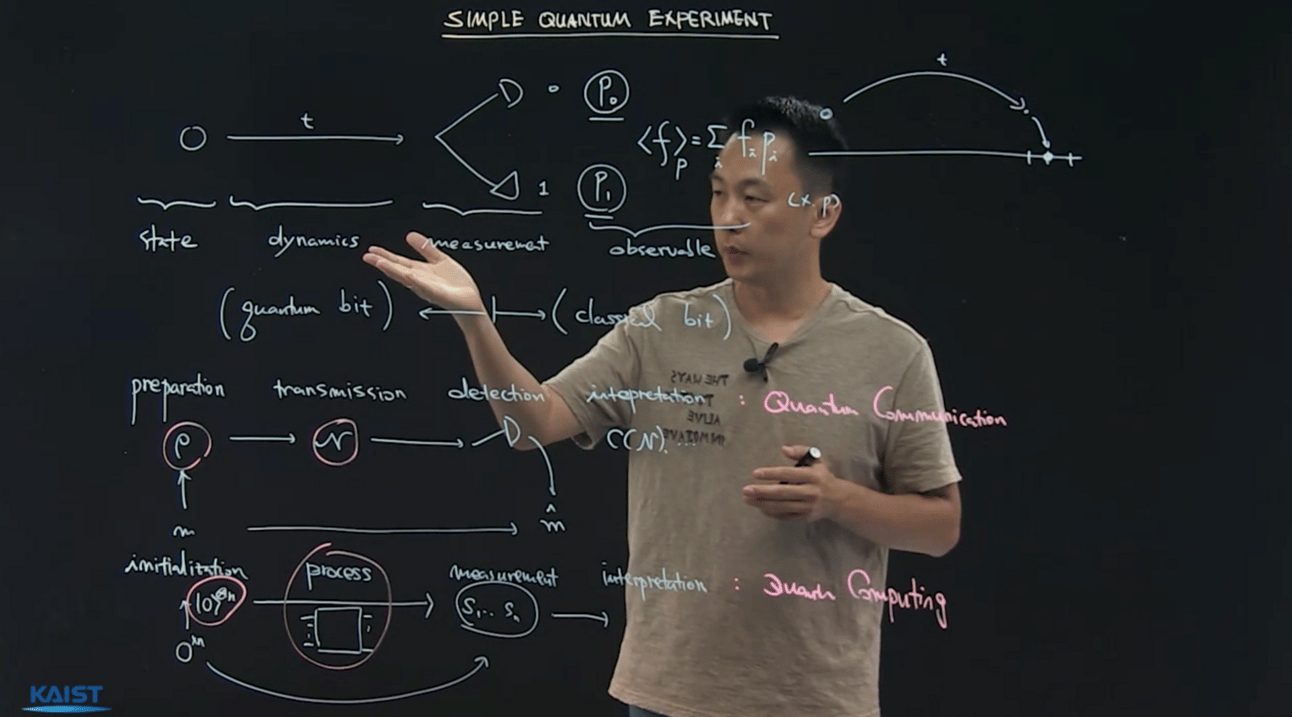 SIMPLE QUANTUM EXPERIMENT
t
0 P₀
t
⟨f⟩ₚ = Σᵢ fᵢ pᵢ
1 P₁
(x, p)
state dynamics measurement observable
(quantum bit) (classical bit)
preparation transmission detection intepretation : Quantum Communication
ρ N C(N). ...
m m̂
initialization process measurement interpretation : Quantum Computing
|0⟩^⊗n S₁... Sₙ
0ⁿ
THE WAYS
ALIVE
KAIST